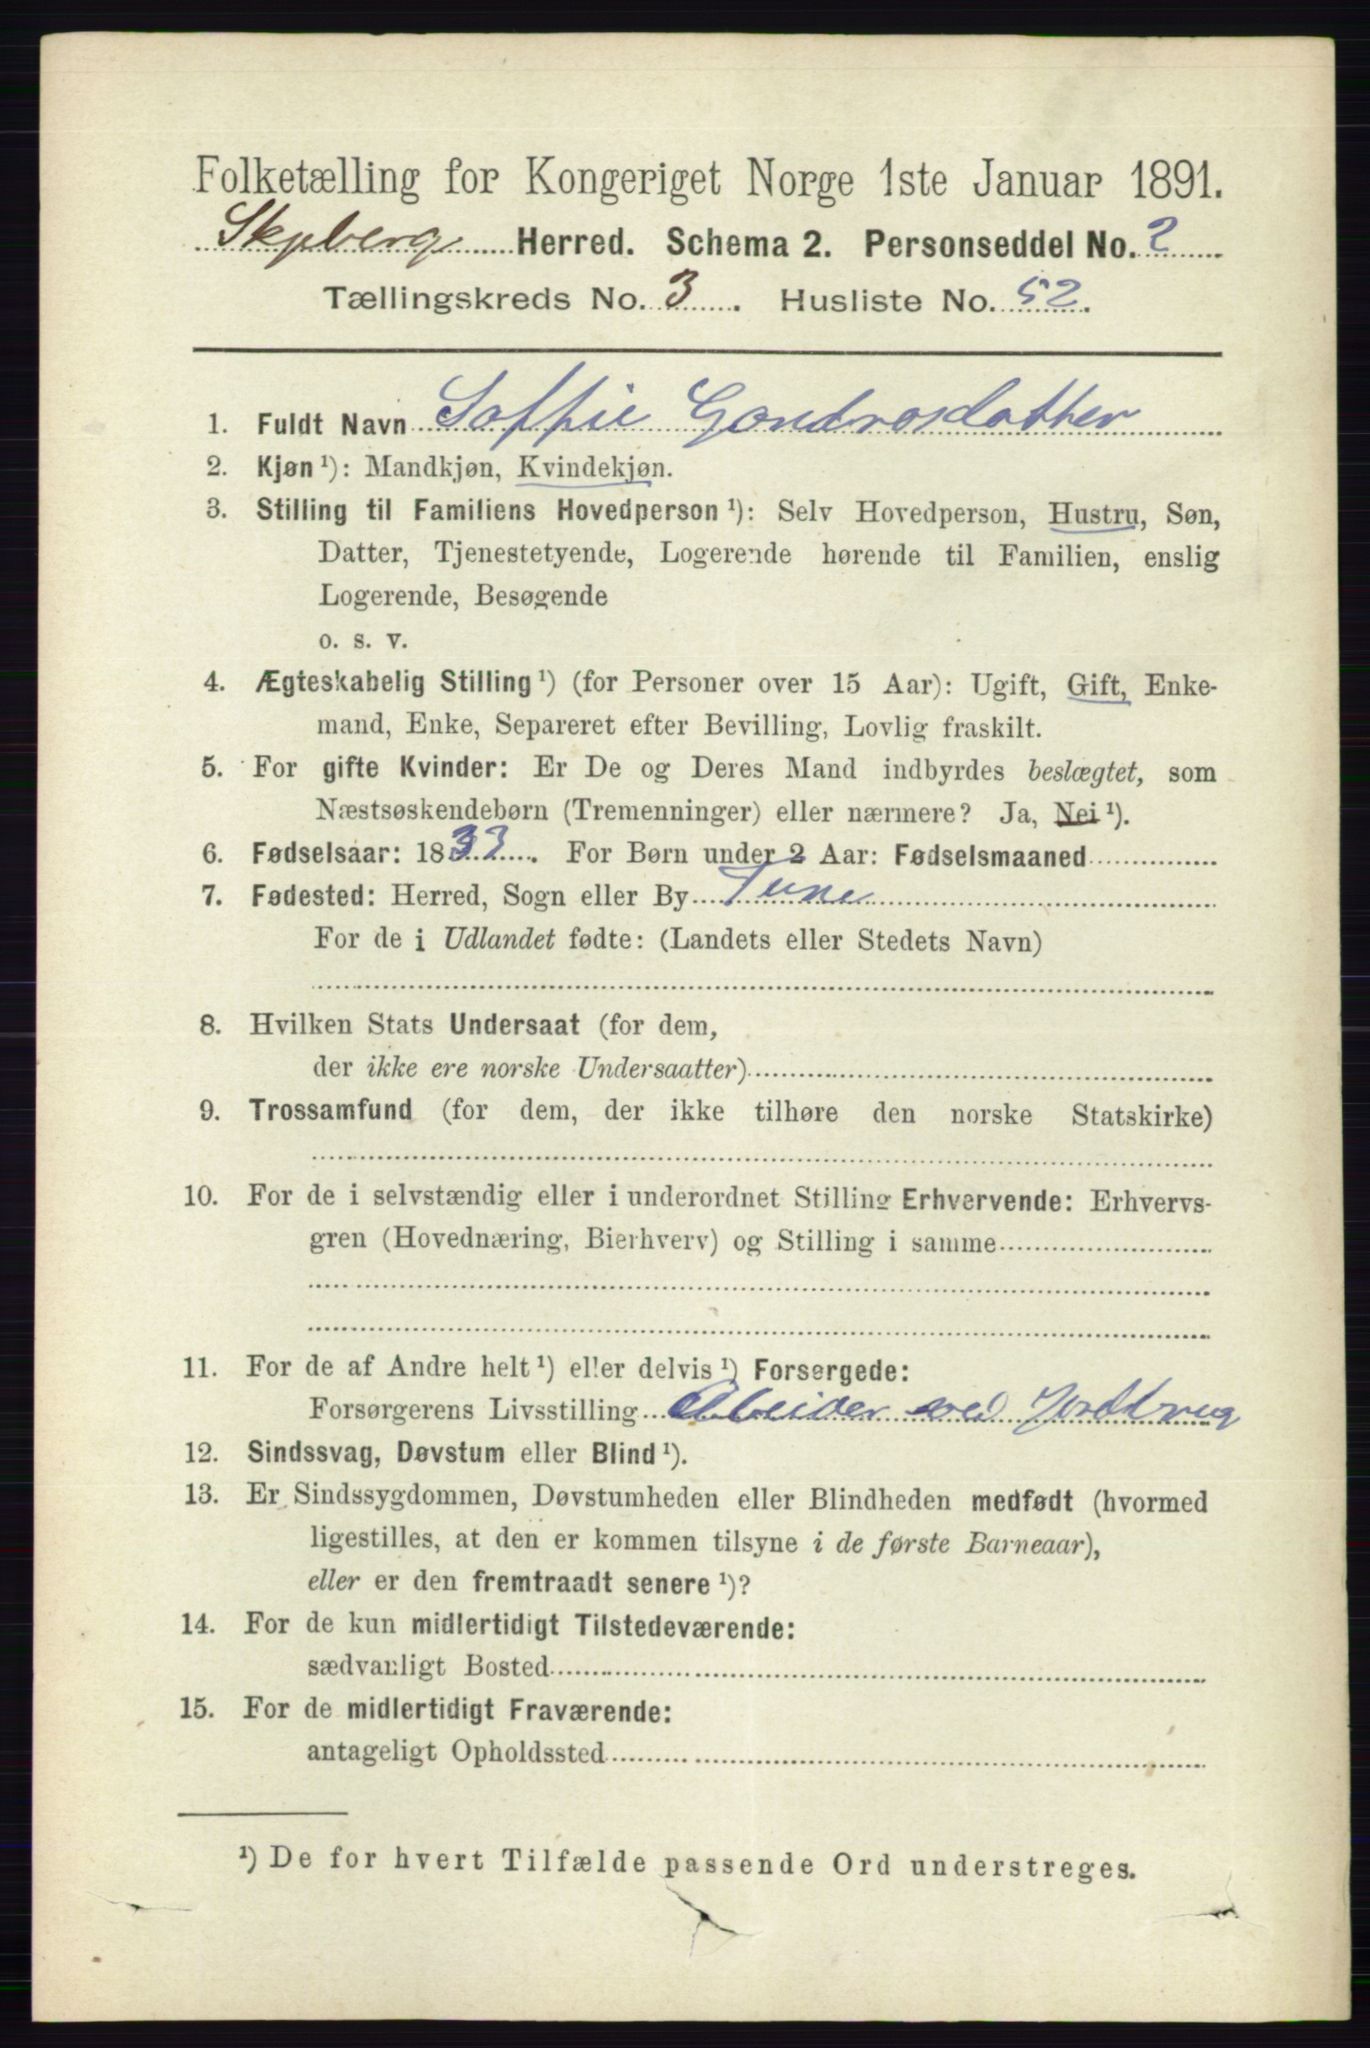 Folketælling for Kongeriget Norge 1ste Januar 1891.
Skjeberg Herred. Schema 2. Personseddel No. 2
Tællingskreds No. 3. Husliste No. 52.
1. Fuldt Navn Soffie Gondrosdatter
2. Kjøn ¹): Mandkjøn, Kvindekjøn.
3. Stilling til Familiens Hovedperson ¹): Selv Hovedperson, Hustru, Søn,
Datter, Tjenestetyende, Logerende hørende til Familien, enslig
Logerende, Besøgende
o. s. v.
4. Ægteskabelig Stilling ¹) (for Personer over 15 Aar): Ugift, Gift, Enke-
mand, Enke, Separeret efter Bevilling, Lovlig fraskilt.
5. For gifte Kvinder: Er De og Deres Mand indbyrdes beslægtet, som
Næstsøskendebørn (Tremenninger) eller nærmere? Ja, Nei ¹).
6. Fødselsaar: 1833. For Børn under 2 Aar: Fødselsmaaned
7. Fødested: Herred, Sogn eller By Tune
For de i Udlandet fødte: (Landets eller Stedets Navn)
8. Hvilken Stats Undersaat (for dem,
der ikke ere norske Undersaatter)
9. Trossamfund (for dem, der ikke tilhøre den norske Statskirke)
10. For de i selvstændig eller i underordnet Stilling Erhvervende: Erhvervs-
gren (Hovednæring, Bierhverv) og Stilling i samme
11. For de af Andre helt ¹) eller delvis ¹) Forsørgede:
Forsørgerens Livsstilling Abeider ved Jordbrug
12. Sindssvag, Døvstum eller Blind ¹).
13. Er Sindssygdommen, Døvstumheden eller Blindheden medfødt (hvormed
ligestilles, at den er kommen tilsyne i de første Barneaar),
eller er den fremtraadt senere ¹)?
14. For de kun midlertidigt Tilstedeværende:
sædvanligt Bosted
15. For de midlertidigt Fraværende:
antageligt Opholdssted
¹) De for hvert Tilfælde passende Ord understreges.